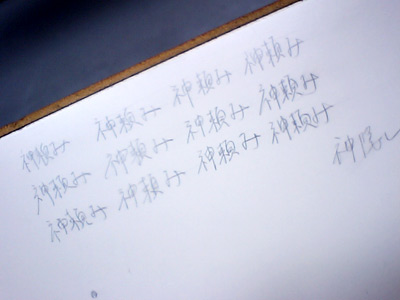 神頼み 神頼み 神頼み 神頼み
神頼み 神頼み 神頼み 神頼み
神頼み 神頼み 神頼み 神頼み
神隠し